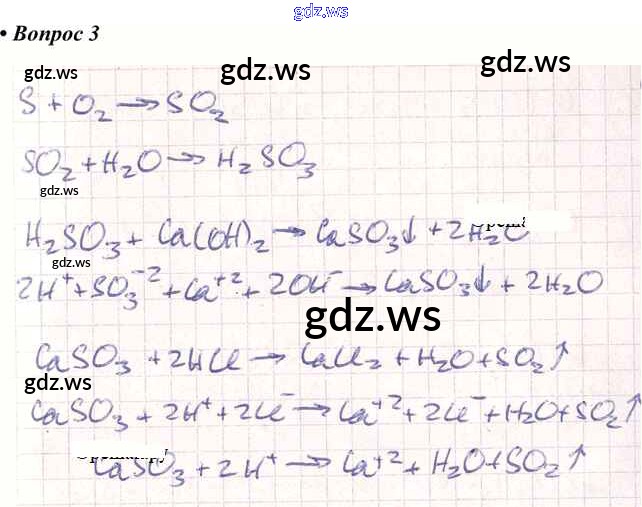 gdz.ws
• Вопрос 3
gdz.ws gdz.ws gdz.ws
S + O₂ → SO₂
SO₂ + H₂O → H₂SO₃
gdz.ws
H₂SO₃ + Ca(OH)₂ → CaSO₃↓ + 2H₂O
gdz.ws
2H⁺ + SO₃⁻² + Ca⁺² + 2OH⁻ → CaSO₃↓ + 2H₂O
gdz.ws
CaSO₃ + 2HCl → CaCl₂ + H₂O + SO₂↑
gdz.ws
CaSO₃ + 2H⁺ + 2Cl⁻ → Ca⁺² + 2Cl⁻ + H₂O + SO₂↑
CaSO₃ + 2H⁺ → Ca⁺² + H₂O + SO₂↑